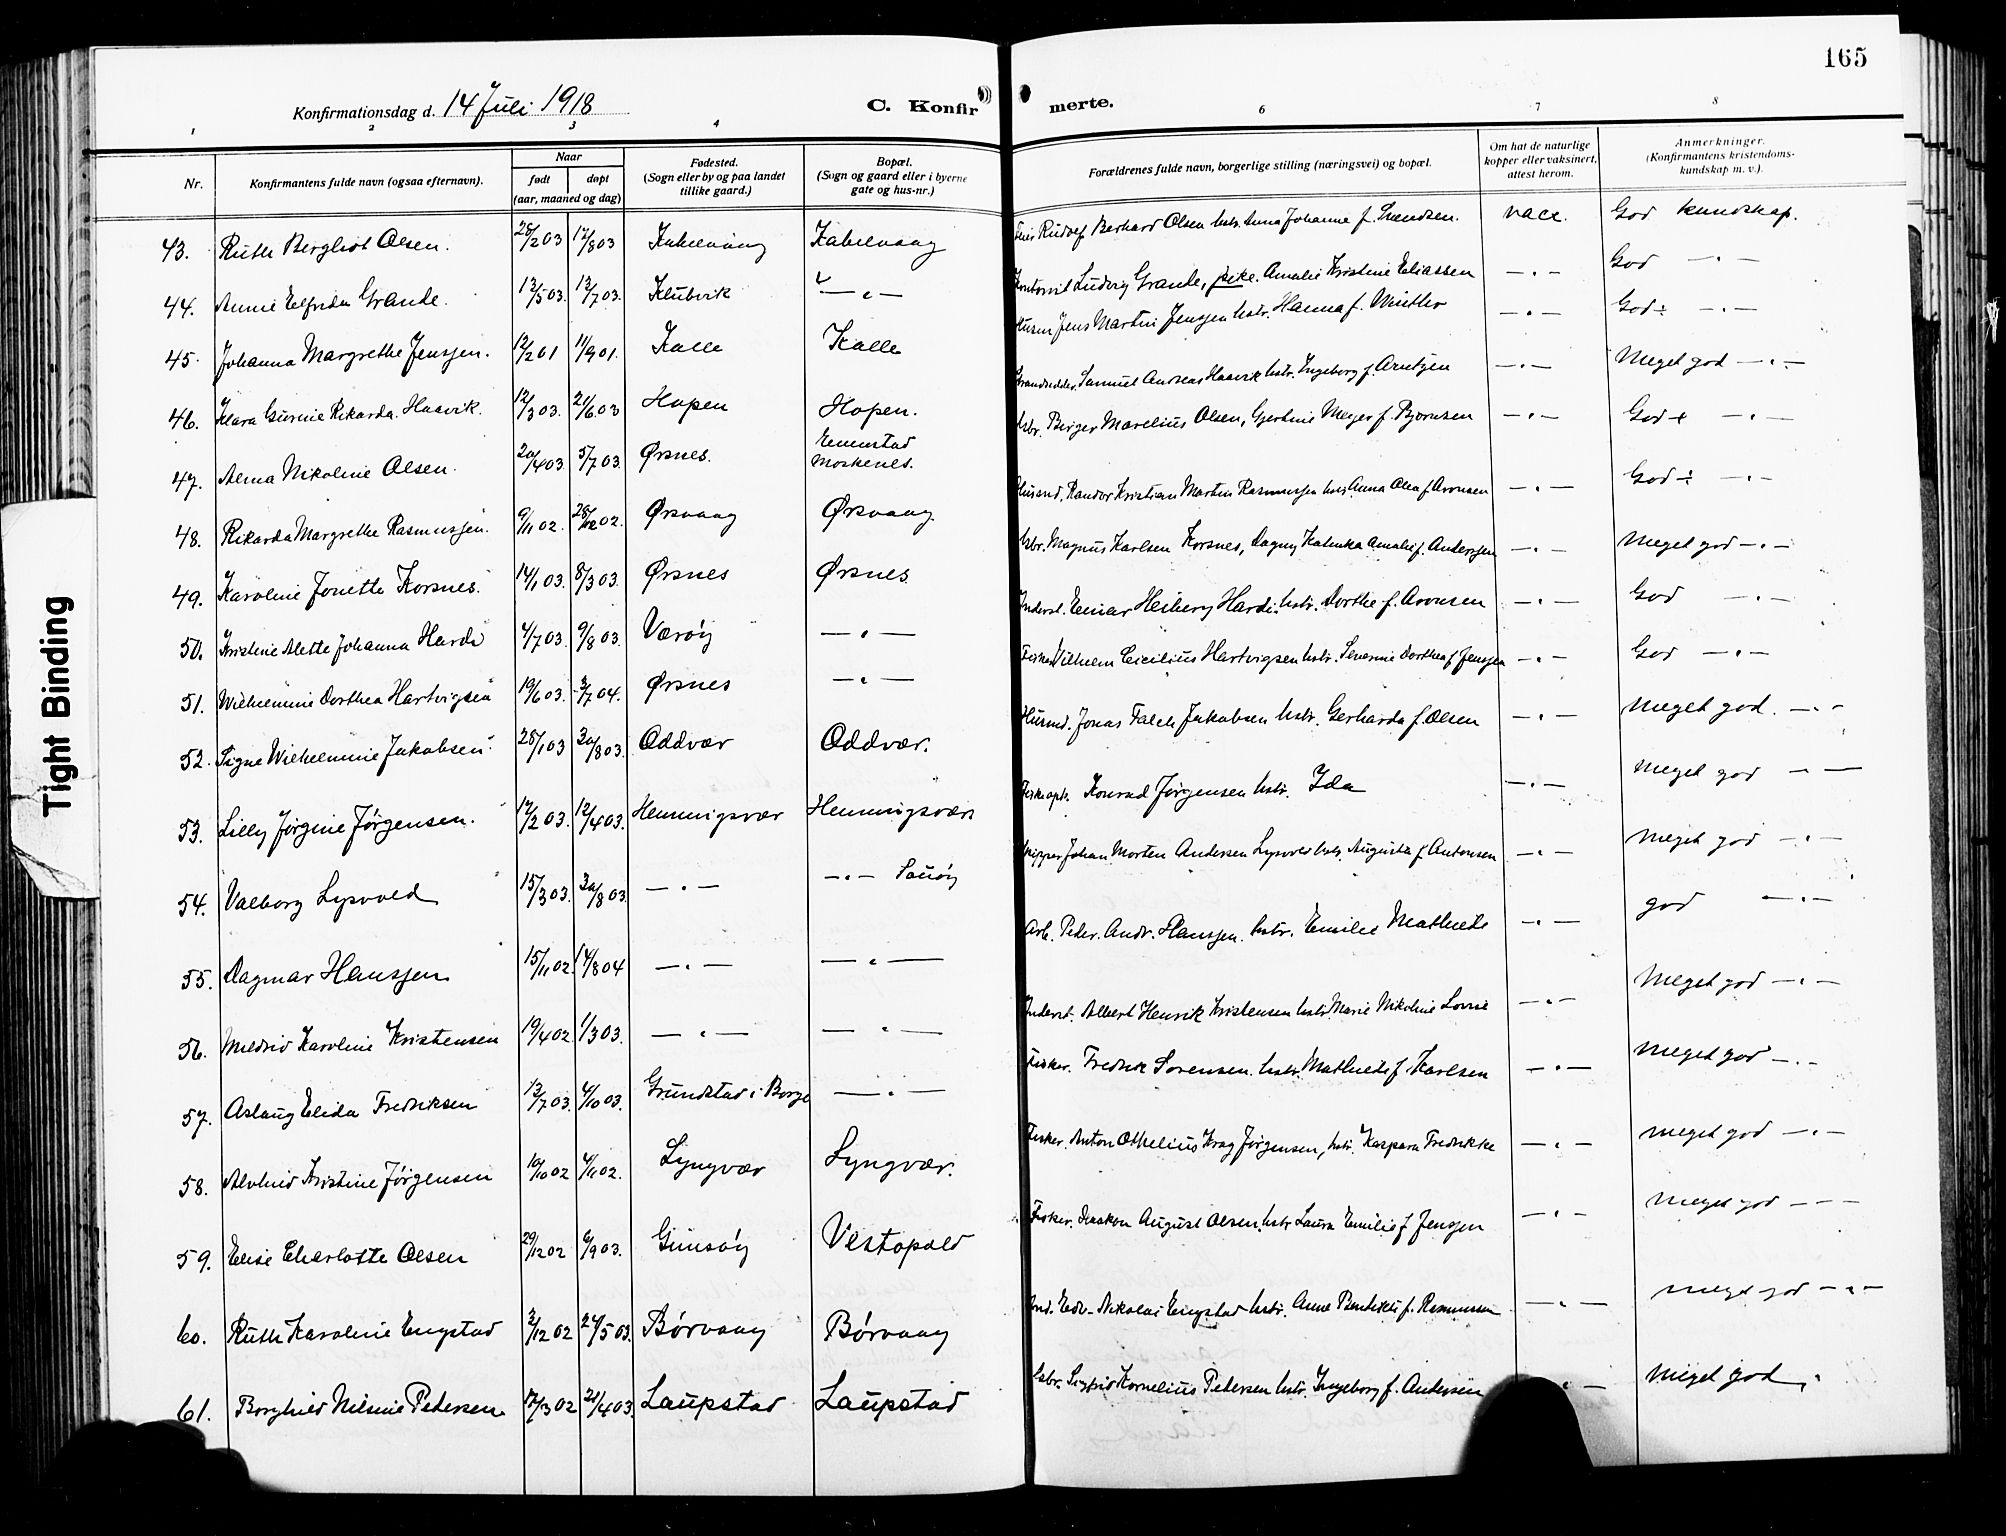 165
Konfirmationsdag d. 14 Juli 1918
C. Konfirmerte.
1 2 3 4 6 7 8
Nr. Konfirmantens fulde navn (ogsaa efternavn). Naar født døpt (aar, maaned og dag) Fødested. (Sogn eller by og paa landet tillike gaard.) Bopæl. (Sogn og gaard eller i byerne gate og hus-nr.) Forældrenes fulde navn, borgerlige stilling (næringsvei) og bopæl. Om hat de naturlige kopper eller vaksinert, attest herom. Anmerkninger. (Konfirmantens kristendoms-kundskap m. v.).
43. Ruth Bergliot Olsen. 28/2 03 17/8 03 Kabelvaag Kabelvaag Rudolf Berhard Olsen hstr. Anna Johanne f. Svendsen. vacc. God kundskap.
44. Annie Elfrida Grande. 13/5 03. 12/7 03. Klubvik — " — Ludvig Grande, pike. Amalie Kristine Eliassen — " — God — " —
45. Johanna Margrethe Jensen. 12/2 01 11/9 01. Kalle Kalle Husm Jens Martin Jensen hstr. Hanna f. Winther — " — God ÷ — " —
46. Klara Gurine Rikarda Haavik. 12/3 03. 21/6 03 Hopen Hopen. Strandsidder. Samuel Andreas Haavik hstr. Ingeborg f. Arntzen — " — Meget god — " —
47. Alma Nikoline Olsen. 20/4 03. 5/7 03. Ørsnes. Moskenes. Gbr. Birger Marelius Olsen, Gjertine Meyer f. Bjørnsen — " — God + — " —
48. Rikarda Margrethe Rasmussen. 9/11 02. 28/12 02. Ørsvaag Ørsvaag. Husmd. Randor Kristian Martin Rasmussen hstr Anna Olea f Aronsen — " — God ÷ — " —
49. Karoline Jonette Korsnes. 14/1 03. 8/3 03. Ørsnes Ørsnes. Gbr. Magnus Karlsen Korsnes, Dagny Katinka Amalie f. Anderssen — " — Meget god — " —
50. Kristine Alette Johanna Hardi 4/7 03. 9/8 03. Værøy — " — Inderst. Einar Heiberg Hardi hstr. Dorthe f. Aronsen — " — God — " —
51. Wilhelmine Dorthea Hartvigsen 19/6 03. 3/7 04. Ørsnes — " — Fisker Vilhelm Cicilius Hartvigsen hstr. Severine Dorthea f Jensen — " — God — " —
52. Signe Wilhelmine Jakobsen. 28/1 03 30/8 03. Oddvær Oddvær. Husmd. Jonas Falch Jakobsen hstr. Gerharda f. Olsen — " — Meget god. — " —
53. Lilly Jørgine Jørgensen. 17/2 03. 12/4 03. Henningsvær Henningsvær Konrad Jørgensen hstr. Ida — " — Meget god — —
54. Valborg Lysvold 15/3 03. 30/8 03. — " — — " — Sauøy Skipper Johan Morten Andersen Lysvold hstr. Augusta f. Antonsen — " — Meget god — " —
55. Dagmar Hanssen 15/11 02. 14/8 04 — " — — " — Arb. Peder. Andr. Hanssen. hstr. Emilie Mathilde — " — god — " —
56. Mildrid Karoline Kristensen 19/4 02. 1/3 03. — " — — " — Inderst. Albert Henrik Kristensen hstr. Marie Nikoline Lovise — " — Meget god — " —
57. Aslaug Elida Fredriksen 13/7 03. 4/10 03. Grundstad i Borge — " — Fisker. Fredrik Sørensen. hstr. Mathilde f Karlsen — " — Meget god — " —
58. Alvhild Kristine Jørgensen 10/10 02 4/11 02. Lyngvær Lyngvær. Fisker. Anton Othelius Krag Jørgensen, hstr. Kaspara Fredrikke — " — Meget god — " —
59. Elise Charlotte Olsen 29/12 02 6/9 03. Gimsøy Vestopold Fisker. Haakon August Olsen, hstr Laura Emilie f Jenssen — " — Meget god — " —
60. Ruth Karoline Engstad 3/12 02 24/5 03. Børvaag Børvaag Ind. Edv. Nikolai Engstad hstr. Anne Bendikte f. Rasmussen — " — Meget god — " —
61. Borghild Nilsine Petersen 12/3 02 21/4 03. Laupstad Laupstad Gbr. Sigfrid Kornelius Petersen hstr. Ingeborg f. Andersen — " — Meget god
Tight Binding